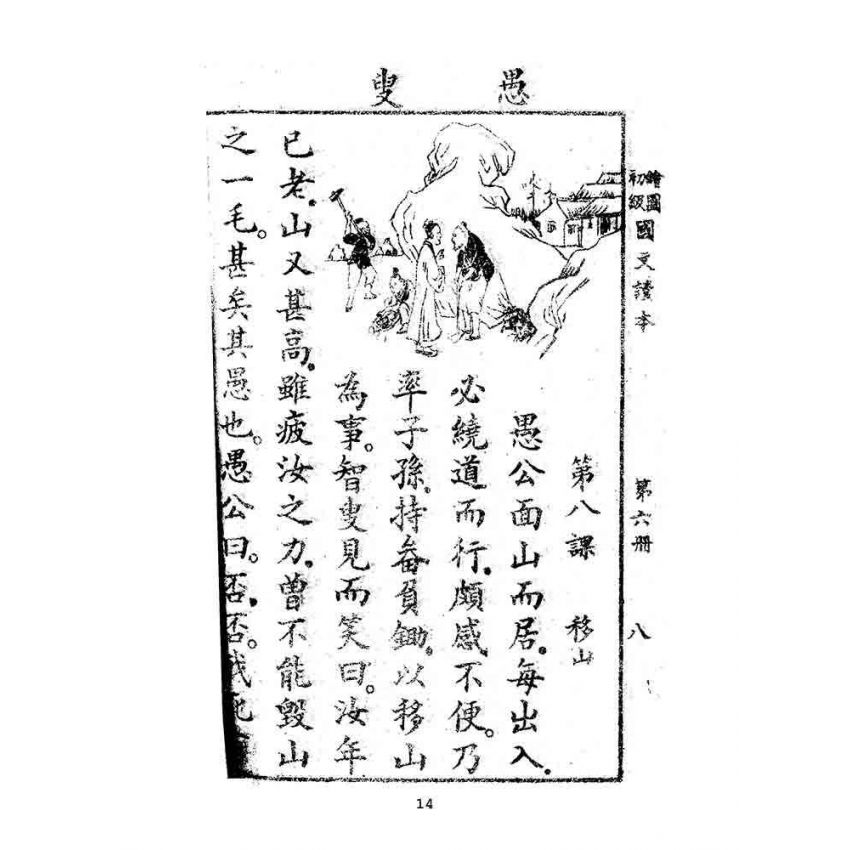 愚叟
繪圖初級國文讀本 第六冊 八
第八課 移山
愚公面山而居。每出入、
必繞道而行、頗感不便。乃
率子孫、持畚負鋤、以移山
為事。智叟見而笑曰。汝年
已老、山又甚高、雖疲汝之力、曾不能毀山
之一毛。甚矣其愚也。愚公曰。否、否。我死
14